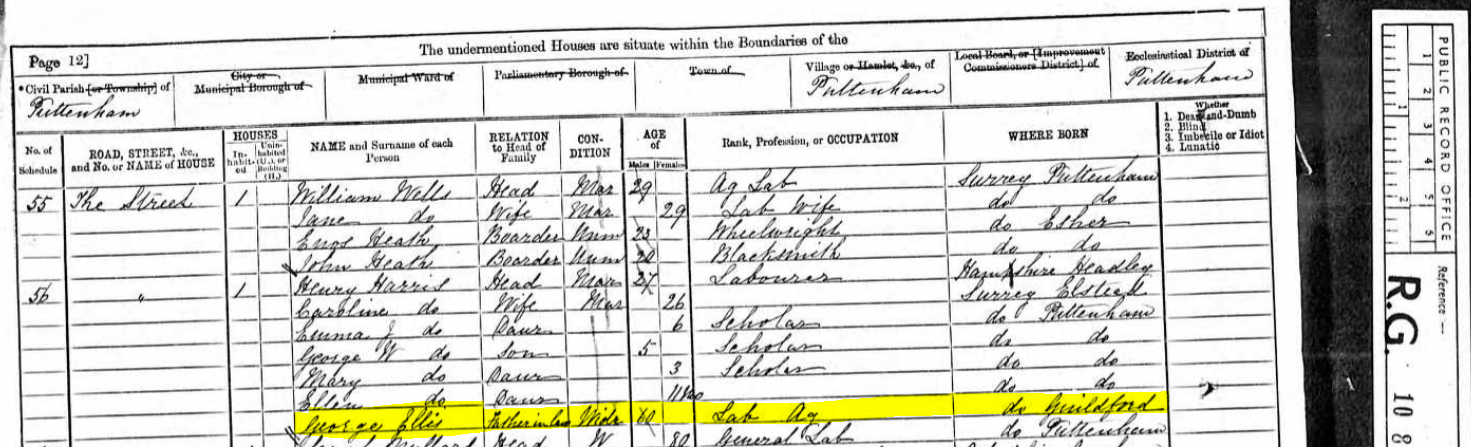 The undermentioned Houses are situate within the Boundaries of the
Page 12]
*Civil Parish [or Township] of
Puttenham
City or Municipal Borough of
Municipal Ward of
Parliamentary Borough of
Town of
Village or Hamlet, &c., of
Puttenham
Local Board, or [Improvement Commissioners District] of
Ecclesiastical District of
Puttenham
No. of Schedule
ROAD, STREET, &c., and No. or NAME of HOUSE
HOUSES
In-habit-ed
Unin-habited (U.), or Building (B.)
NAME and Surname of each Person
RELATION to Head of Family
CON-DITION
AGE of
Males Females
Rank, Profession, or OCCUPATION
WHERE BORN
Whether
1. Deaf-and-Dumb
2. Blind
3. Imbecile or Idiot
4. Lunatic
55 The Street 1 William Wells Head Mar 29 Ag Lab Surrey Puttenham
Jane do Wife Mar 29 Lab Wife do do
Enos Heath Boarder Unm 23 Wheelwright do Esher
John Heath Boarder Unm 20 Blacksmith do do
56 " 1 Henry Harris Head Mar 27 Labourer Hampshire Headley
Caroline do Wife Mar 26 Surrey Elstead
Emma J do Daur 6 Scholar do Puttenham
George W do Son 5 Scholar do do
Mary do Daur 3 Scholar do do
Ellen do Daur 11 mo do do
George Ellis Father in law Widr 60 Lab Ag do Guildford
Head W 80 General Lab do Puttenham
PUBLIC RECORD OFFICE
1 2 3 4 5 6
1 2
Reference :—
R.G. 10 8